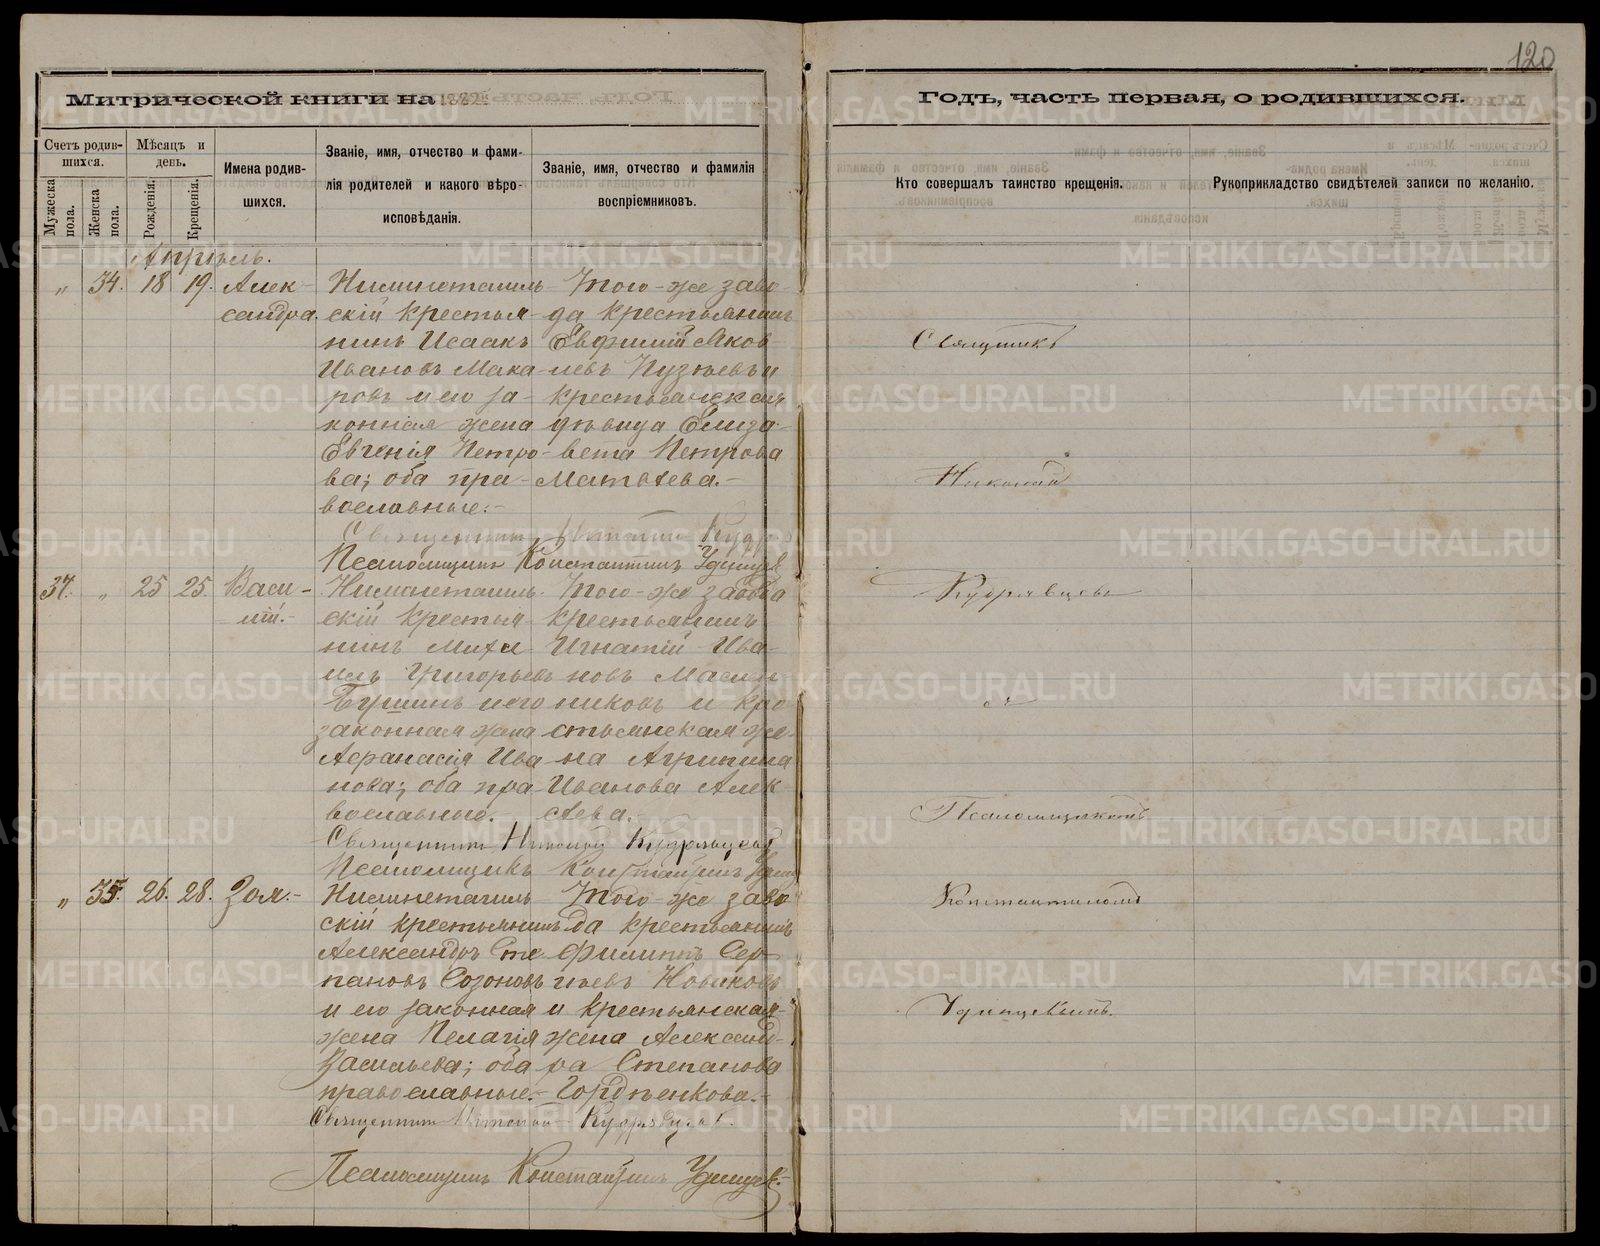 120
Митрической книги на 1882
Годъ, часть первая, о родившихся.
Счетъ родив-
шихся.
Мужеска
пола.
Женска
пола.
Мѣсяцъ и
день.
Рожденія.
Крещенія.
Имена родив-
шихся.
Званіе, имя, отчество и фами-
лія родителей и какого вѣро-
исповѣданія.
Званіе, имя, отчество и фамилія
воспріемниковъ.
Кто совершалъ таинство крещенія.
Рукоприкладство свидѣтелей записи по желанію.
Апрѣль.
„ 34. 18 19. Алек-
сандра.
Нижнетагиль-
скій крестья-
нинъ Исаакъ
Ивановъ Мака-
ровъ и его за-
конная жена
Евгенія Петро-
ва; оба пра-
вославные.-
Того-же заво-
да крестьянинъ
Евфимій Яков-
левъ Пузѣевъ и
крестьянская
дѣвица Елиза-
вета Петрова
Матвѣева.-
Священникъ
Псаломщикъ Константинъ Удинцев
37. „ 25 25. Васи-
лій.-
Нижнетагиль-
скій крестья-
нинъ Миха-
илъ Григорьевъ
и его
законная жена
Афанасія Ива-
нова; оба пра-
вославные.
Того-же завода
крестьянинъ
Игнатій Ива-
новъ Маслен-
никовъ и кре-
стьянская же-
на Агрипина
Иванова Алек-
сѣева.
Священникъ Николай Кудрявцевъ
Псаломщикъ Константинъ
„ 35. 26. 28. Зоя.-
Нижнетагиль-
скій крестьянинъ
Александръ Сте-
пановъ Созоновъ
и его законная
жена Пелагія
Васильева; оба
православные.-
Того-же заво-
да крестьянинъ
Филиппъ Сер-
гѣевъ Новиковъ
и крестьянская
жена Александ-
ра Степанова
Гордѣенкова.-
Священникъ Кудрявцевъ.
Псаломщикъ Константинъ Удинцев.-
Священникъ
Николай
Кудрявцевъ
съ
Псаломщикомъ
Константиномъ
Удинцевымъ.
METRIKI.GASO-URAL.RU